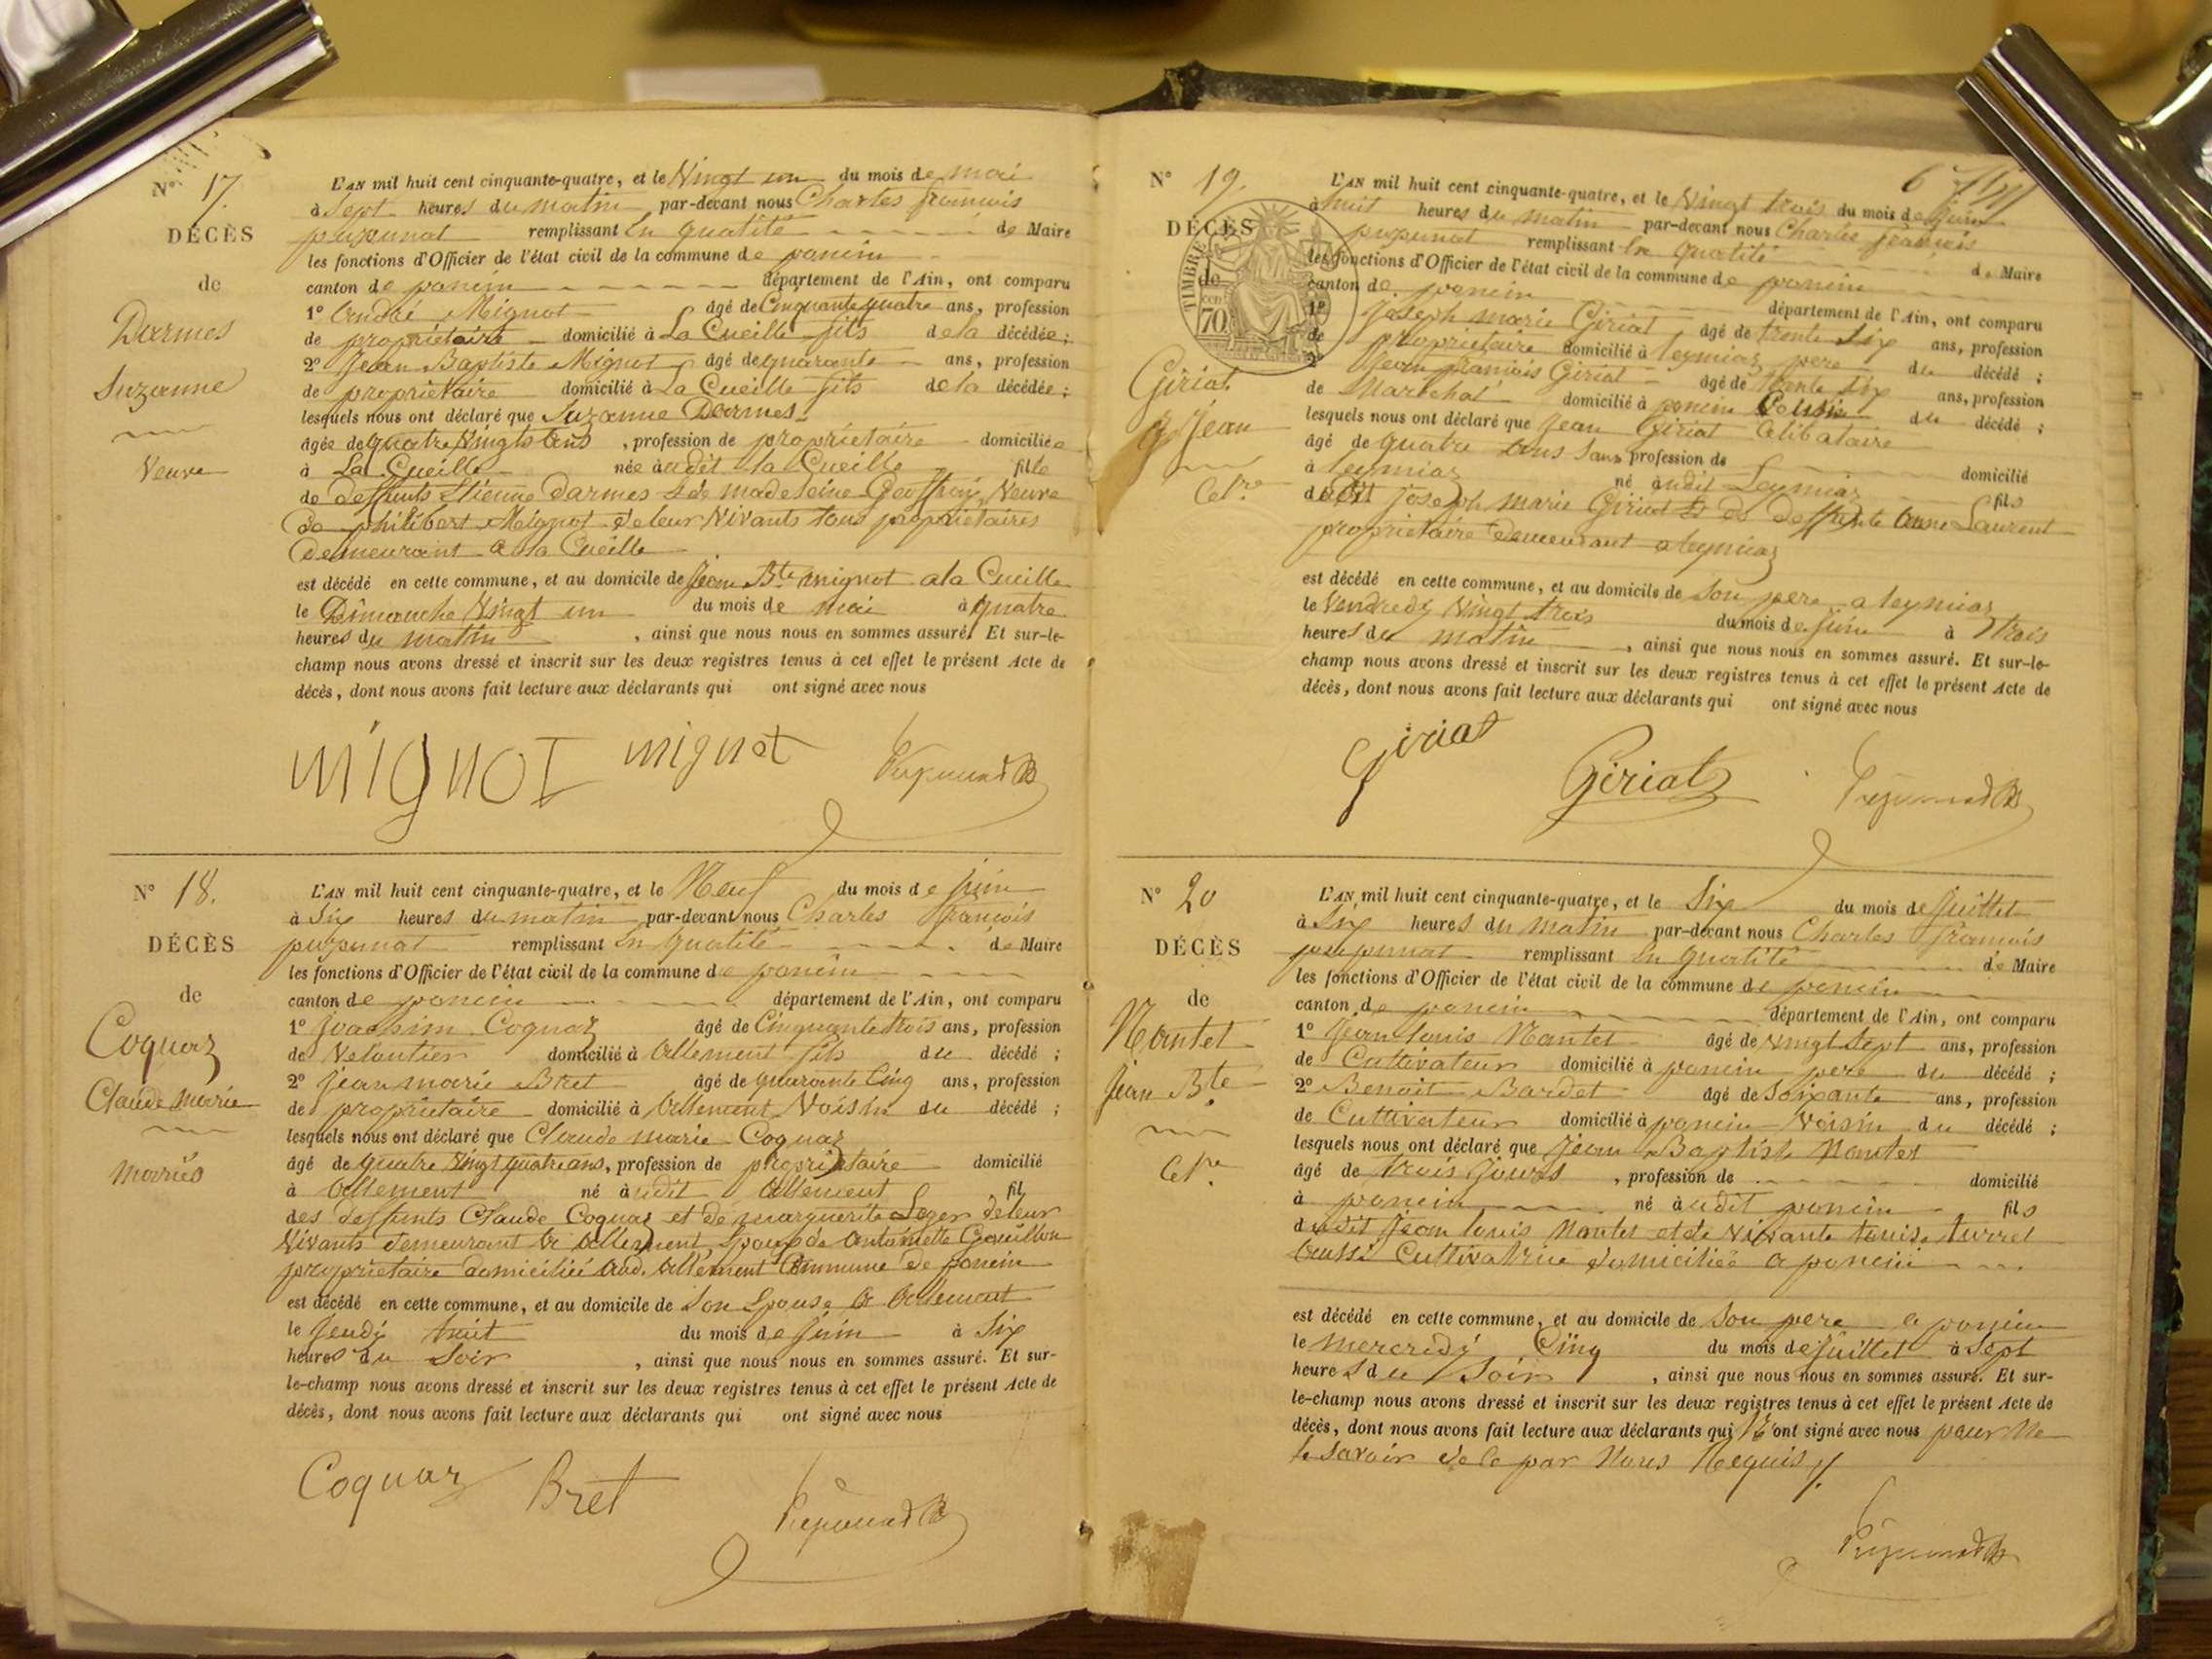 N° 17.
DÉCÈS
de
Darmes
Suzanne
Veuve
L'AN mil huit cent cinquante-quatre, et le Vingt un du mois de mai
à Sept heures du matin par-devant nous Charles francois
pupunat remplissant En qualité de Maire
les fonctions d'Officier de l'état civil de la commune de poncin
canton de poncin département de l'Ain, ont comparu
1° André Mignot âgé de Cinquante quatre ans, profession
de propriétaire domicilié à La Cueille fils de la décédée ;
2° Jean Baptiste Mignot âgé de quarante ans, profession
de propriétaire domicilié à La Cueille fils de la décédée ;
lesquels nous ont déclaré que Suzanne Darmes
âgée de quatre Vingts ans , profession de propriétaire domiciliée
à La Cueille née audit la Cueille fille
de deffunts Etienne Darmes & de madeleine Geoffray Veuve
de philibert Mignot de leur Vivants tous propriétaires
Demeurant a la Cueille
est décédé en cette commune, et au domicile de Jean Bte mignot a la Cueille
le Dimanche Vingt un du mois de mai à quatre
heures du matin , ainsi que nous nous en sommes assuré. Et sur-le-
champ nous avons dressé et inscrit sur les deux registres tenus à cet effet le présent Acte de
décès, dont nous avons fait lecture aux déclarants qui ont signé avec nous
mignot mignot Pupunat
N° 18.
DÉCÈS
de
Coquaz
Claude Marie
Mariés
L'AN mil huit cent cinquante-quatre, et le Neuf du mois de juin
à Six heures du matin par-devant nous Charles francois
pupunat remplissant En qualité de Maire
les fonctions d'Officier de l'état civil de la commune de poncin
canton de poncin département de l'Ain, ont comparu
1° Joachim Coquaz âgé de Cinquante trois ans, profession
de domicilié à Allement fils du décédé ;
2° Jean marie Bret âgé de quarante Cinq ans, profession
de propriétaire domicilié à Allement Voisin du décédé ;
lesquels nous ont déclaré que Claude marie Coquaz
âgé de quatre Vingt quatre ans, profession de propriétaire domicilié
à Allement né audit Allement fil
des deffunts Claude Coquaz et de marguerite Leger de leur
Vivants demeurant a Allement, Epoux de Antoinette Gouillon
propriétaire domiciliée aud. Allement Commune de poncin
est décédé en cette commune, et au domicile de Son Epouse a Allement
le Jeudi huit du mois de juin à Six
heures du Soir , ainsi que nous nous en sommes assuré. Et sur-
le-champ nous avons dressé et inscrit sur les deux registres tenus à cet effet le présent Acte de
décès, dont nous avons fait lecture aux déclarants qui ont signé avec nous
Coquaz Bret Pupunat
N° 19.
DÉCÈS
TIMBRE
de
cen
70
Giriat
Jean
Cel.re
L'AN mil huit cent cinquante-quatre, et le Vingt trois du mois de juin
à huit heures du matin par-devant nous Charles francois
pupunat remplissant En qualité de Maire
les fonctions d'Officier de l'état civil de la commune de poncin
canton de poncin département de l'Ain, ont comparu
1° Joseph marie Giriat âgé de trente Six ans, profession
de propriétaire domicilié à Leymiaz pere du décédé ;
2° Jean francois Giriat âgé de trente Six ans, profession
de Maréchal domicilié à poncin Cousin du décédé ;
lesquels nous ont déclaré que Jean Giriat Celibataire
âgé de quatre ans Sans profession de domicilié
à Leymiaz né audit Leymiaz fils
dudit Joseph Marie Giriat & de deffunte Anne Laurent
propriétaire demeurant a leymiaz
est décédé en cette commune, et au domicile de Son pere a leymiaz
le Vendredy Vingt trois du mois de juin à trois
heures du matin , ainsi que nous nous en sommes assuré. Et sur-le-
champ nous avons dressé et inscrit sur les deux registres tenus à cet effet le présent Acte de
décès, dont nous avons fait lecture aux déclarants qui ont signé avec nous
Giriat Giriat Pupunat
N° 20
DÉCÈS
de
Nantet
Jean Bte
Cel.re
L'AN mil huit cent cinquante-quatre, et le Six du mois de Juillet
à Six heures du matin par-devant nous Charles francois
pupunat remplissant En qualité de Maire
les fonctions d'Officier de l'état civil de la commune de poncin
canton de poncin département de l'Ain, ont comparu
1° Jean louis Nantet âgé de vingt Sept ans, profession
de Cultivateur domicilié à poncin pere du décédé ;
2° Benoit Bardet âgé de Soixante ans, profession
de Cultivateur domicilié à poncin Voisin du décédé ;
lesquels nous ont déclaré que Jean Baptiste Nantet
âgé de trois jours , profession de domicilié
à poncin né audit poncin fils
dudit Jean louis Nantet et de Vivante louise turrel
Aussi Cultivatrice domiciliée a poncin
est décédé en cette commune, et au domicile de Son pere a poncin
le mercredi Cinq du mois de Juillet à Sept
heures du Soir , ainsi que nous nous en sommes assuré. Et sur-
le-champ nous avons dressé et inscrit sur les deux registres tenus à cet effet le présent Acte de
décès, dont nous avons fait lecture aux déclarants qui N'ont signé avec nous pour Ne
le Savoir de ce par Nous Requis
Pupunat